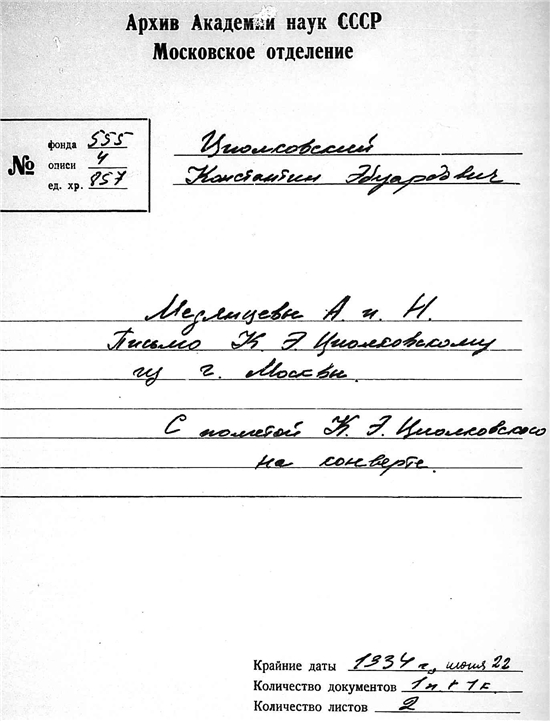 Архив Академии наук СССР
Московское отделение
№
фонда 555
описи 4
ед. хр. 857
Циолковский
Константин Эдуардович
Медянцевы А. и Н.
Письмо К. Э. Циолковскому
из г. Москвы.
С пометой К. Э. Циолковского
на конверте.
Крайние даты 1934 г., июня 22
Количество документов 1п + 1к.
Количество листов 2